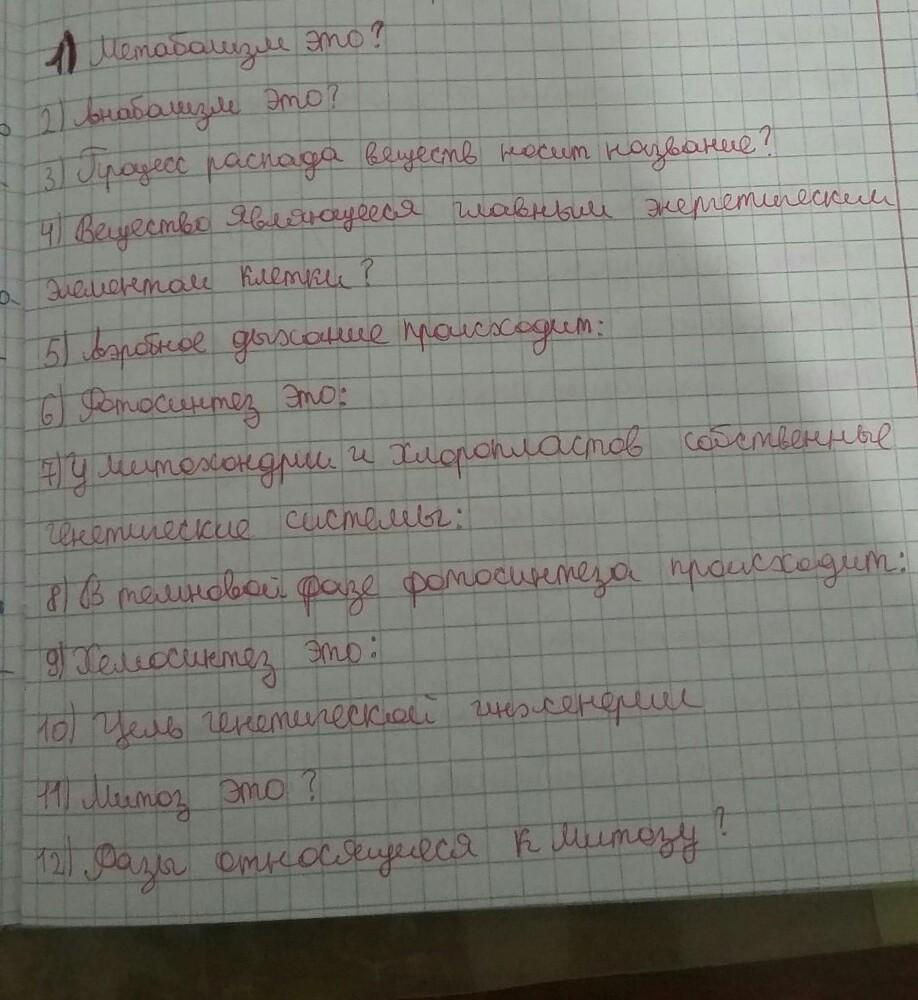 1) Метаболизм это?
2) Анаболизм это?
3) Процесс распада веществ носит название?
4) Вещество являющееся главным энергетическим
элементом клетки?
5) Аэробное дыхание происходит:
6) Фотосинтез это:
7) У митохондрии и хлоропластов собственные
генетические системы:
8) В темновой фазе фотосинтеза происходит:
9) Хемосинтез это:
10) Цель генетической инженерии
11) Митоз это?
12) Фазы относящиеся к митозу?